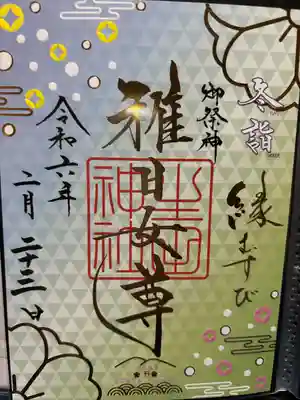 冬詣
縁むすび
御祭神
稚日女尊
神社
令和六年
二月二十三日